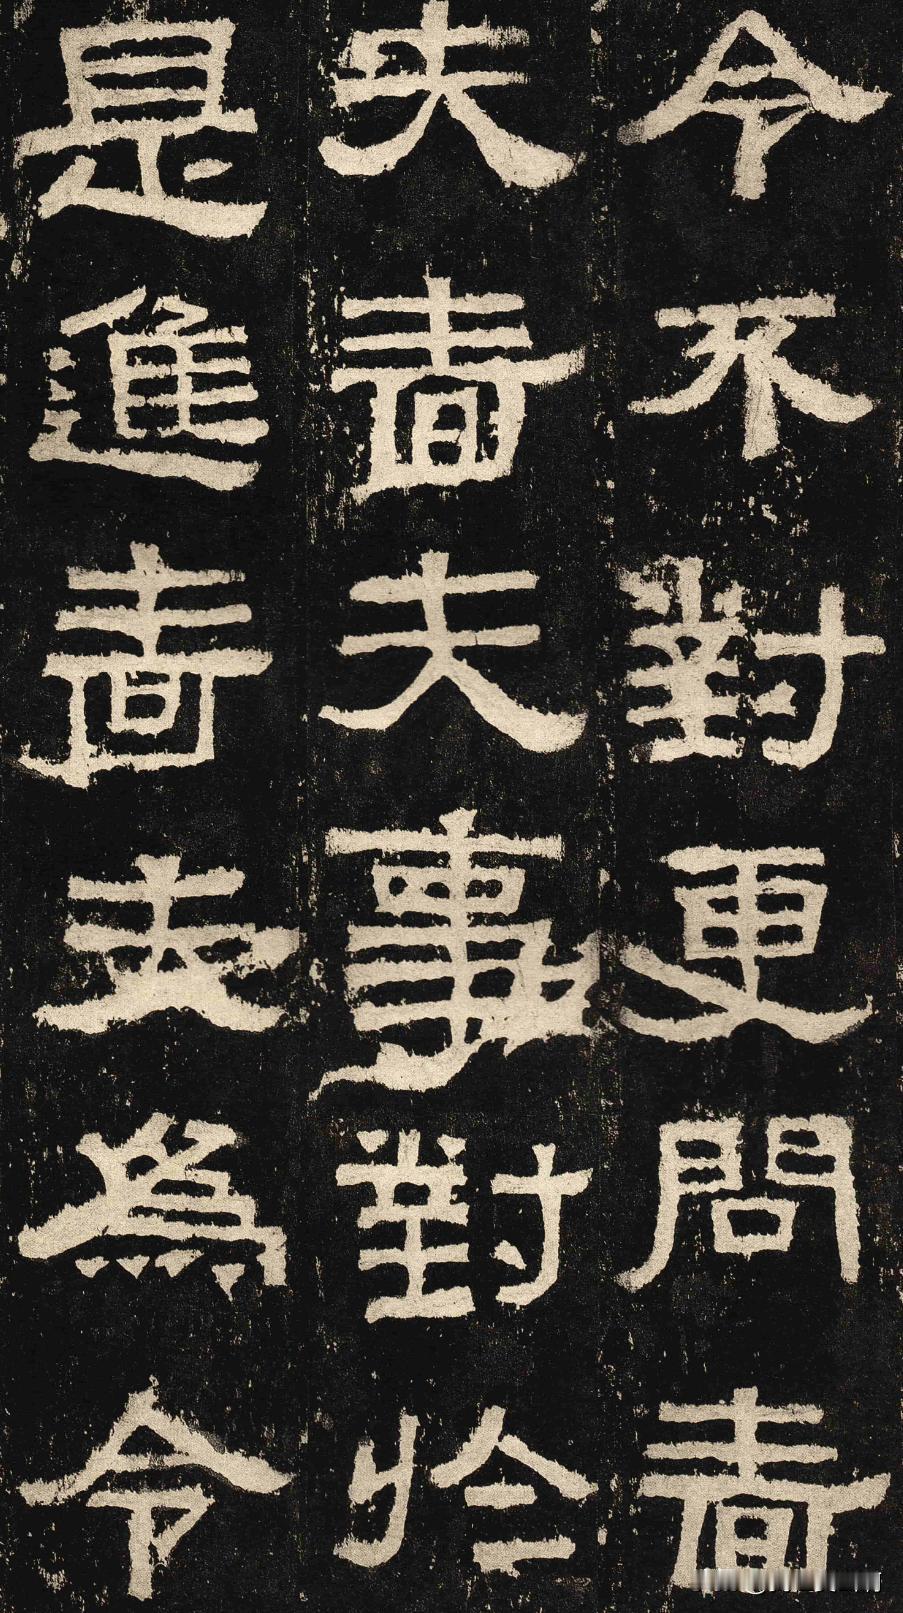 令不對更問嗇
夫嗇夫事對於
是進嗇夫爲令